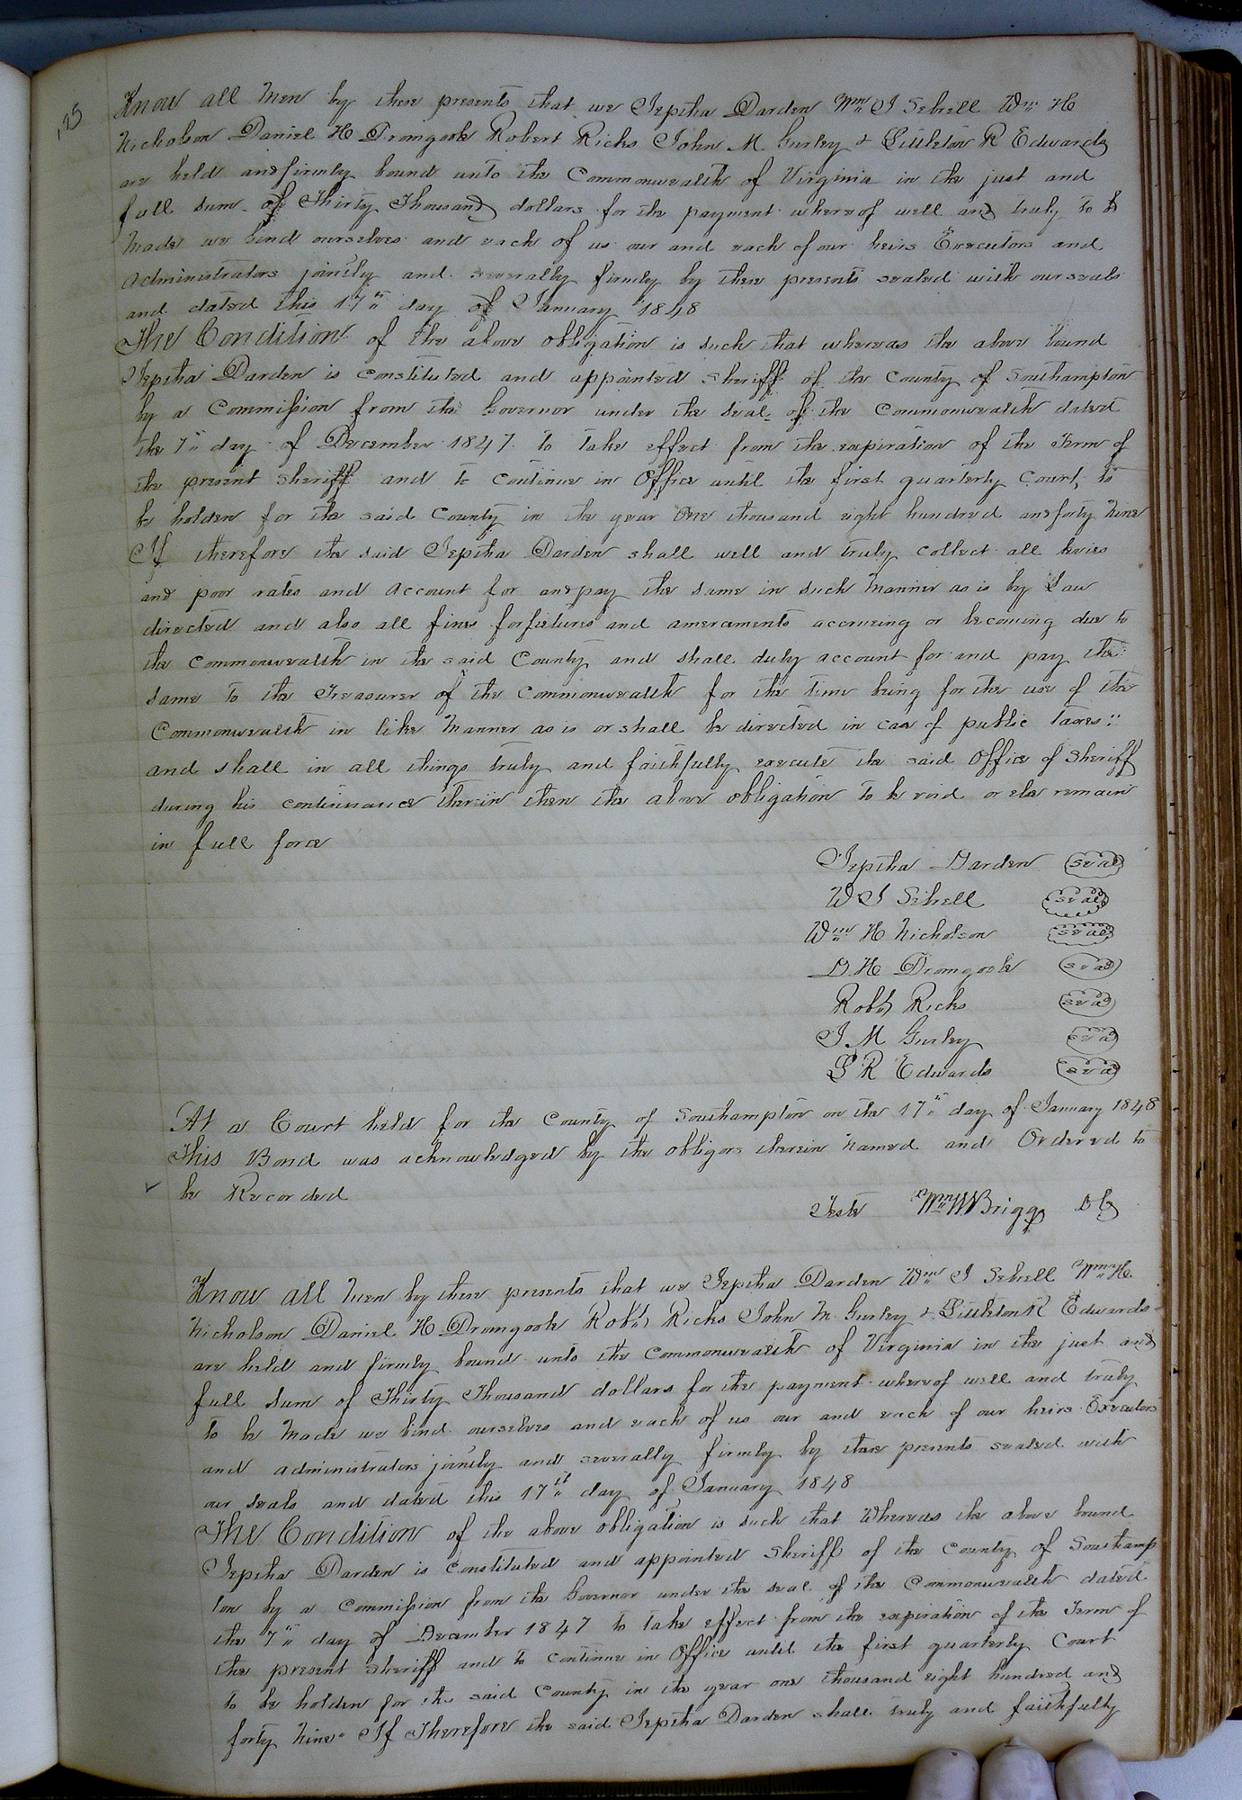 Know all men by these presents that we Jeptha Darden Wm J Sebrell Wm H
Nicholson Daniel H Dromgoole Robert Ricks John M Gurley & Littleton R Edwards
are held and firmly bound unto the Commonwealth of Virginia in the just and
full sum of Thirty Thousand dollars for the payment whereof well and truly to be
made we bind ourselves and each of us our and each of our heirs Executors and
administrators jointly and severally firmly by these presents sealed with our seals
and dated this 17th day of January 1848
The Condition of the above obligation is such that whereas the above bound
Jeptha Darden is constituted and appointed Sheriff of the County of Southampton
by a Commission from the Governor under the seal of the Commonwealth dated
the 7th day of December 1847 to take effect from the expiration of the Term of
the present Sheriff and to continue in Office until the first quarterly Court to
be holden for the said County in the year One thousand eight hundred and forty Nine
If therefore the said Jeptha Darden shall well and truly collect all levies
and poor rates and account for and pay the same in such manner as is by Law
directed and also all fines forfietures and amercements accrueing or becoming due to
the Commonwealth in the said County and shall duly account for and pay the
same to the Treasurer of the Commonwealth for the time being for the use of the
Commonwealth in like manner as is or shall be directed in case of public taxes:
and shall in all things truly and faithfully execute the said Office of Sheriff
during his continuance therein then the above obligation to be void or else remain
in full force
Jeptha Darden seal
W J Sebrell seal
Wm H Nicholson seal
D H Dromgoole seal
Robt Ricks seal
J. M Gurley seal
L R Edwards seal
At a Court held for the County of Southampton on the 17th day of January 1848
This Bond was acknowledged by the obligors therein named and Ordered to
be Recorded
Teste Wm W Briggs D C
Know all men by these presents that we Jeptha Darden Wm J Sebrell Wm H
Nicholson Daniel H Dromgoole Robt Ricks John M Gurley & Littleton R Edwards
are held and firmly bound unto the Commonwealth of Virginia in the just and
full sum of Thirty Thousand dollars for the payment whereof well and truly
to be made we bind ourselves and each of us our and each of our heirs Executors
and administrators jointly and severally firmly by these presents sealed with
our seals and dated this 17th day of January 1848
The Condition of the above obligation is such that Whereas the above bound
Jeptha Darden is constituted and appointed Sheriff of the County of Southamp
ton by a Commission from the Governor under the seal of the Commonwealth dated
the 7th day of December 1847 to take effect from the expiration of the Term of
the present Sheriff and to continue in Office until the first quarterly Court
to be holden for the said County in the year one thousand eight hundred and
forty Nine If Therefore the said Jeptha Darden shall truly and faithfully